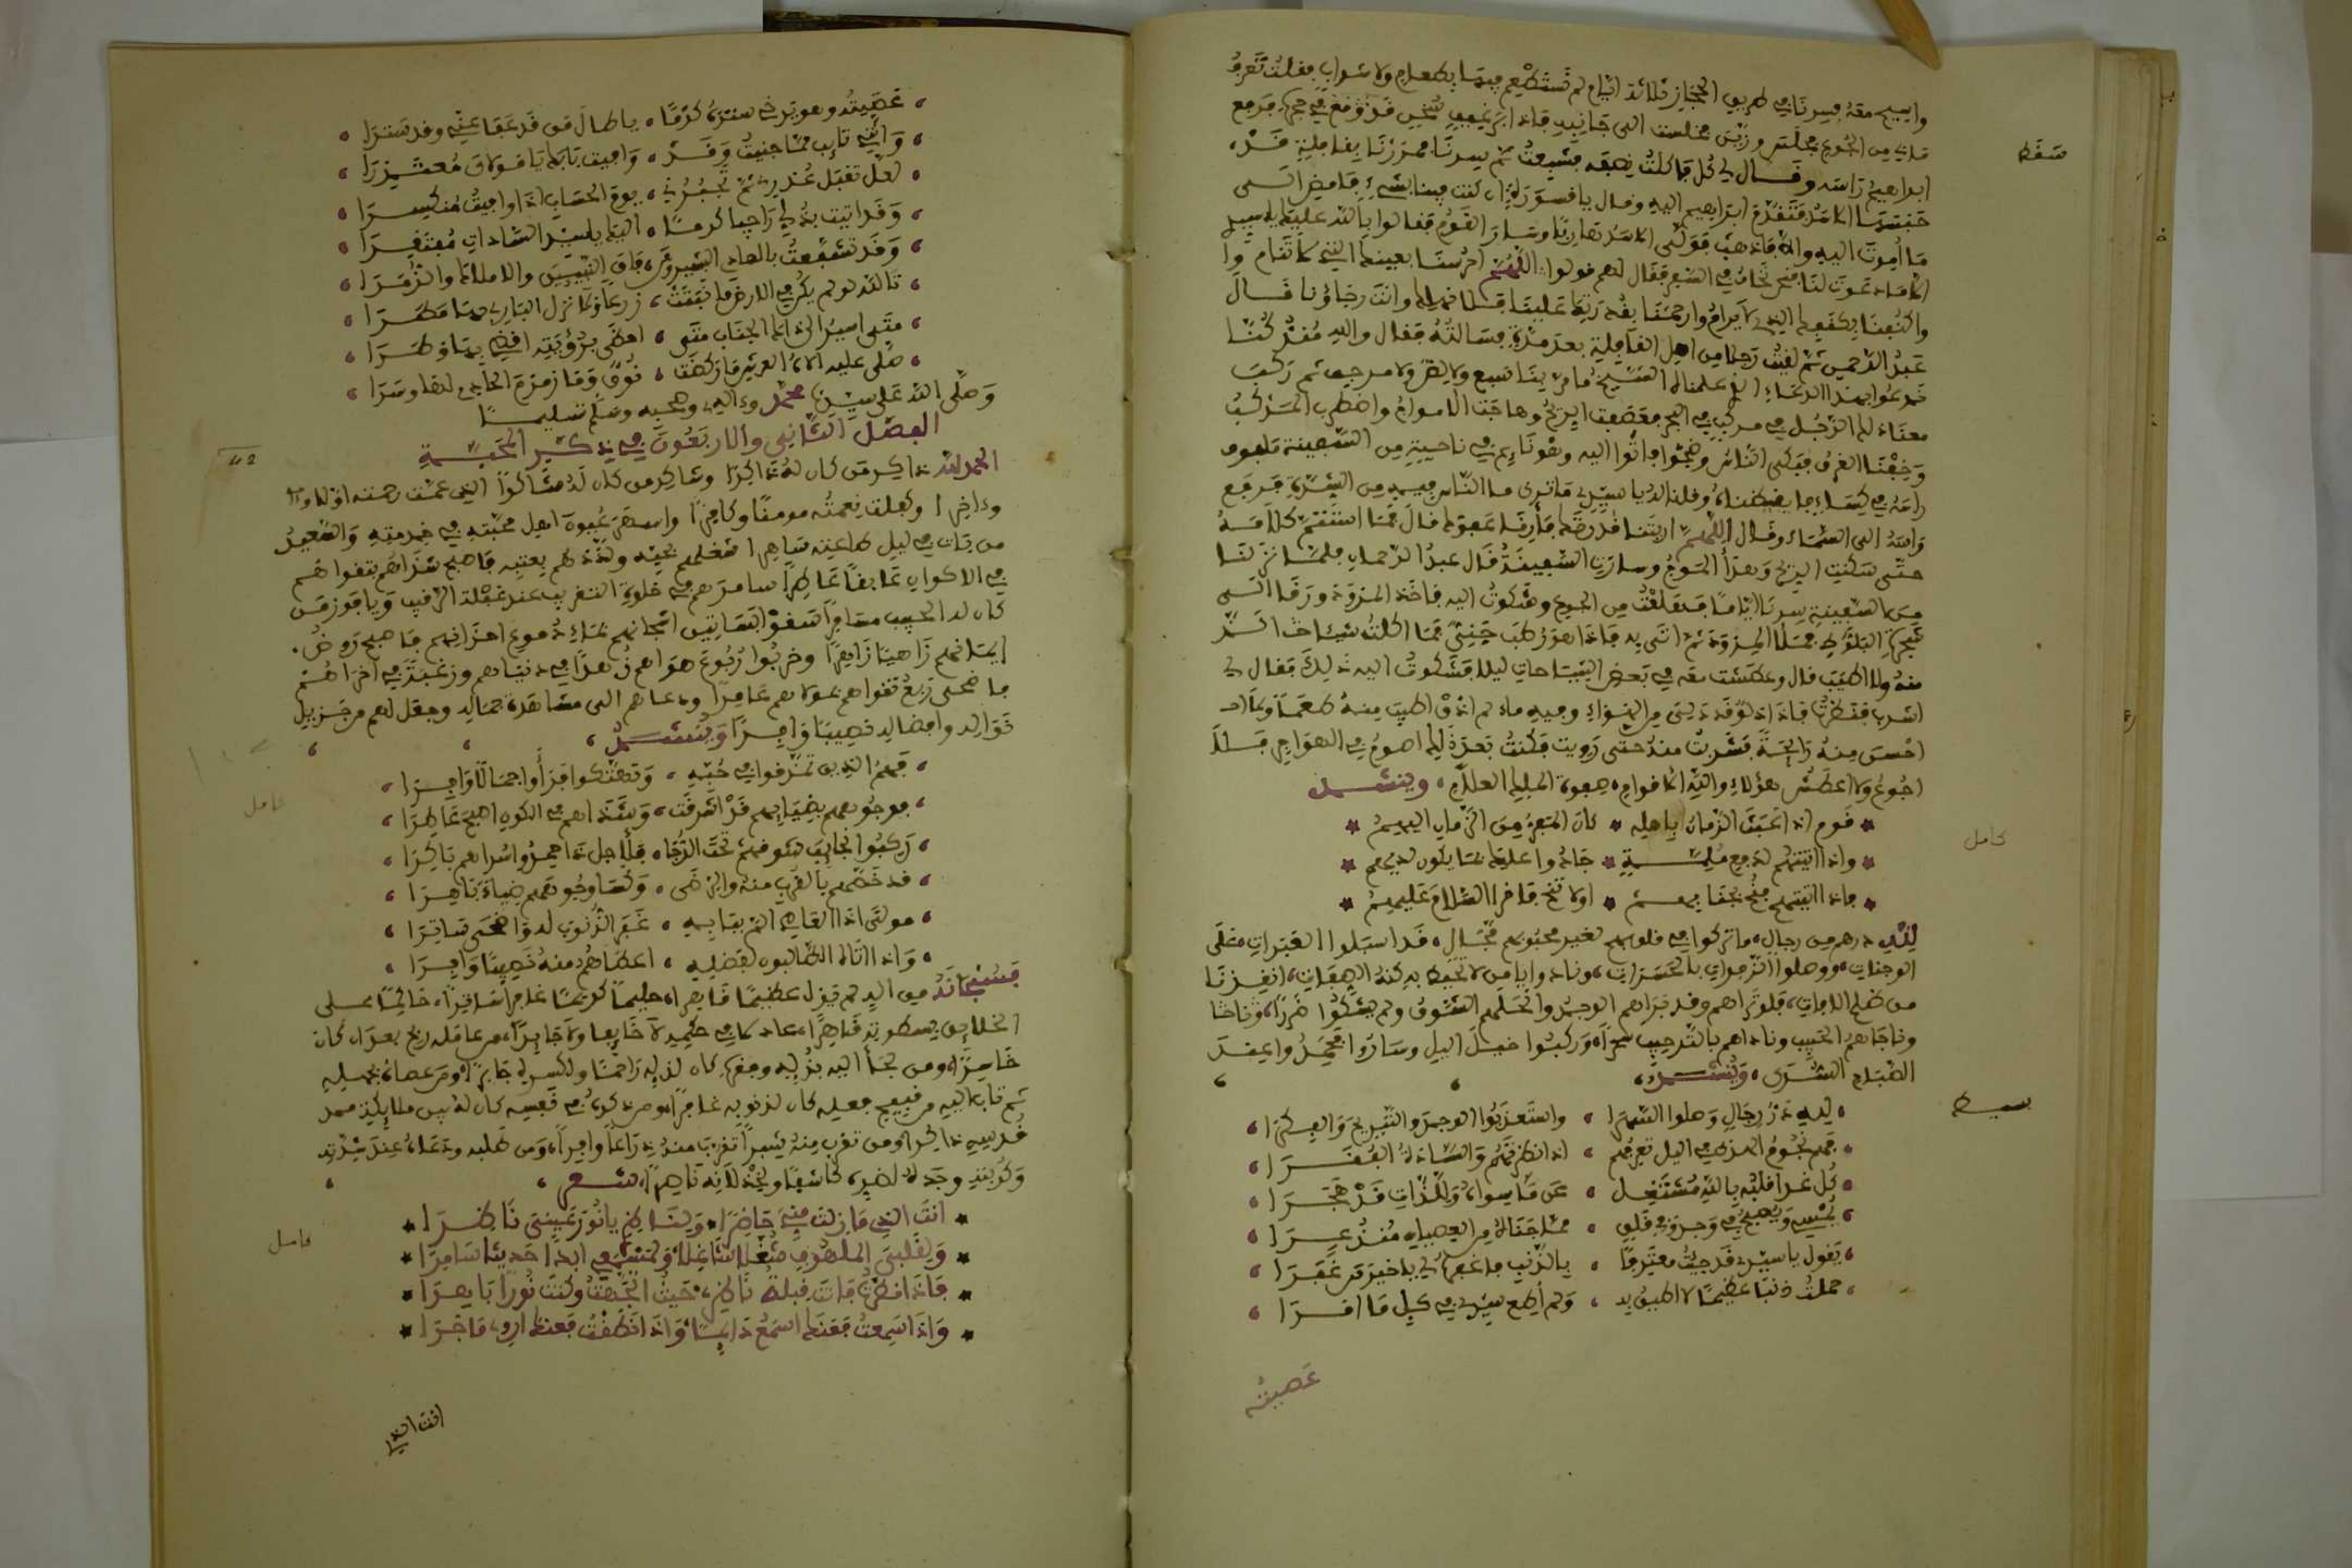 وابيح معه فسرنا في طريق الحجاز ثلاثة ايام لم نستطعم فيها بطعام ولا شراب فقلت
من الجوع فجلس فجلست الى جانبه فاذا
ابراهيم راسه وقال لي كل فاكلت نصفه فشبعت ثم سرنا فمررنا بقافلة قد
حبسها الاسد فتقدم ابراهيم اليه وقال يا قسورة ان كنت فينا بشيء فامض الى
ما امرت اليه والا فاذهب فولى الاسد هاربا وسار القوم فقالوا بالله عليك يا سيدي
لنا فنحن نخاف من السبع فقال لهم قولوا اللهم احرسنا بعينك التي لا تنام
واكنفنا بكنفك الذي لا يرام وارحمنا بقدرتك علينا فلا نهلك وانت رجاؤنا قال
عبد الرحمن ثم لقيت رجلا من اهل القافلة بعد مدة فسالته فقال والله منذ كنا
ندعوا بهذا الدعاء الذي علمنا له الشيخ ما راينا سبع ولا لص ثم ركب
معنا ذلك الرجل في مركب في البحر فعصفت الريح وهاجت الامواج واضطرب المركب
وخفنا الغرق فبكى الناس وضجوا فاتوا اليه وهو نايم في ناحية من السفينة ملفوف
راسه في كساء فايقظناه وقلنا له يا سيدي ما ترى ما الناس فيه من الشدة فرفع
راسه الى السماء وقال اللهم اريتنا قدرتك فأرنا عفوك قال فما استتم كلامه
حتى سكنت الريح وهدأ الموج وسارت السفينة قال عبد الرحمان فلما نزلنا
من السفينة سرنا اياما فقلقت من الجوع وشكوت اليه فاخذ المزودة ورقا الى
شجرة البلوط فملأ المزودة ثم اتى به فاذا هو رطب جني فما اكلت شيئا الذ
منه ولا اطيب قال وعطشت معه في بعض السياحات ليلا فشكوت اليه ذلك فقال لي
اشرب فنظرت فاذا دلو قد دلي من الهواء وفيه ماء لم اذق اطيب منه طعما ولا
احسن منه رائحة فشربت منه حتى رويت فكنت بعد ذلك اصوم في الهواجر فلا
اجوع ولا اعطش هؤلاء والله اقوام صفوة الملك العلام وينشد
قوم اذا عبث الزمان باهله * كان المفر من الزمان اليهم
واذا اتيتهم لدفع ملمة * جادوا عليك بما يكون لديهم
اولا تنخ فاقرا السلام عليهم
لله درهم من رجال ما تركوا في قلوبهم لغير محبوبهم مجال قد اسبلوا العبرات على
الوجنات ووصلوا الزفرات بالحسرات ونادوا يا من لا تحيط به كنه الصفات
من ظلم فلو تراهم وقد براهم الوجد وانحلهم الشوق ولم يشكوا ضررا
وناجاهم الحبيب وناداهم بالترحيب سحرا وركبوا خيل الليل وساروا فحمدوا عند
الصباح السرى وينشد
لله در رجال وصلوا السهرا • واستعذبوا الوجد والتبريح والفكرا
فهم نجوم الهدى في الليل تعرفهم • اذا نظرتهم والسادة الغفرا
كل غدا قلبه بالله مشتغل • عن ما سواه وللذات قد هجرا
يمسي ويصبح في وجد وفي قلق • مما جناه من العصيان منذعرا
يقول يا سيدي قد جيت معترفا • بالذنب فاغفره لي يا خير من غفرا
حملت ذنبا عظيما لا اطيق به • ولم اطع سيدي في كل ما امرا
عصيته
سقط
كامل
بسيط
عصيته وهو يرخي ستره كرما • يا طال من قد عفا عني وقد سترا
وانني تايب مما جنيت وقد • وافيت بابك يا مولاي معتذرا
لعل تقبل عذري ثم تجبرني • يوم الحساب اذا وافيت منكسرا
وقد اتيت بذلي راجيا كرما • اليك يا سيد السادات مفتقرا
وقد تشفعت بالهادي البشير ومن فاق النبيين والاملاك والزمرا
تالله لو لم يكن في الارض ما نبتت • زرعا ولا انزل الباري بها مطرا
متى اسير الى ذاك الجناب متى • احظى برؤيته اقضي بها وطرا
صلى عليه الاه العرش ما ركضت • نوق وما زمزم الحادي لها وسرا
وصلى الله على سيدنا محمد وءاله وصحبه وسلم تسليما
الفصل الثاني والاربعون في ذكر المحبة
الحمد لله ذاكر من كان له ذاكرا وشاكر من كان له شاكرا الذي عمت رحمته اولا
وءاخرا وكملت نعمته مومنا وكافرا واستقر عيون اهل محبته في خدمته والسعيد
من بات في ليل طاعته ساهرا شغلهم بحبه ولذذهم بعتبه فاصبح شذاهم بتقواهم
في الاكوان عابقا عاطرا سامرهم في خلوة التقريب عند غفلة الرقيب ويا فوز من
كان له الحبيب مسامرا اسقوا بساتين اشجانهم بماء دموع احزانهم فاصبح روض
ايمانهم زاهيا زاهرا وخربوا ربوع هواهم زهدا في دنياهم ورغبة في اخراهم
فاضحى ربع تقواهم بمولاهم عامرا ودعاهم الى مشاهدة جماله وجعل لهم من جزيل
نواله وافضاله نصيبا وافرا وينشد
فهم الذين تمزقوا في حبه • وتهتكوا فرأوا جمالا وافرا
فوجوههم بضيائهم قد اشرقت • وشذاهم في الكون اصبح عاطرا
ركبوا نجائب شوقهم تحت الدجا • فلأجل ذا حمدوا سراهم باكرا
قد خصهم بالقرب منه والرضى • وكسا وجوههم ضياء باهرا
مولى اذا العاصي اتى بقابه • غفر الذنوب له واضحى ساترا
واذا اتاه الطالبون لفضله • اعطاهم منه نصيبا وافرا
فسبحانه من اله لم يزل عظيما قاهرا حليما كريما غافرا ساترا حاكما على
الخلايق بسطوته قاهرا عادلا في حكمه لا خايفا ولا جايرا من عامله ربح بعد ان كان
خاسرا ومن لجأ اليه بذله وفقره كان لذله راحما ولكسره جابرا ومن عصاه بجهله
ثم تاب اليه من قبيح فعله كان لذنوبه غافرا ومن ذكره في نفسه كان له بين ملائكته
قدسه ذاكرا ومن تقرب منه شبرا تقرب منه ذراعا وافرا ومن طلبه ودعاه عند شدته
وكربته وجده لضره كاشفا ولخذلانه ناصرا شعر
انت الذي ما زلت مني حاضرا • ولناظري يا نور عيني ناظرا
ولقلبي الملهوف شغلا شاغلا • ولمسمعي ابدا حديثا سامرا
فاذا نظرت فانت قبلة ناظري • حيث اتجهت وكنت نورا باهرا
واذا سمعت فعنك اسمع دايما • واذا نطقت فعنك اروي ما جرا
انت الذي
42
كامل
كامل